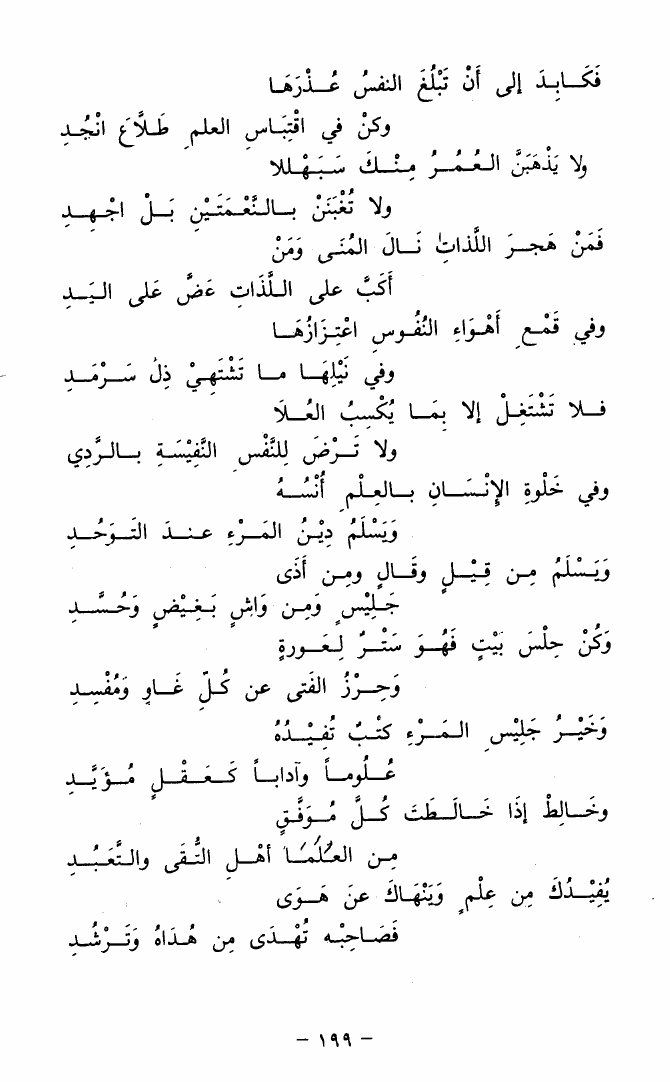 فَكَابِدَ إلى أَنْ تَبْلُغَ النفسُ عُذْرَهَا
وكنْ في اقْتِبَاسِ العلمِ طَلاَّعَ انْجُدِ
ولا يَذْهَبَنَّ العُمْرُ مِنْكَ سَبَهْللا
ولا تُغْبَنَنْ بالنِّعْمَتَيْنِ بَلْ اجْهدِ
فَمَنْ هَجرَ اللَّذاتِ نَالَ المُنَى وَمَنْ
أَكَبَّ على اللَّذَاتِ عَضَّ عَلى اليَدِ
وفي قَمْعِ أَهْوَاءِ النُفُوسِ اعْتِزَازُهَا
وفي نَيْلِهَا ما تَشْتَهِيْ ذِلُ سَرْمَدِ
فلا تَشْتَغِلْ إلا بِمَا يُكْسِبُ العُلَا
ولا تَرْضَ لِلنَّفْسِ النَّفِيْسَةِ بالرَّدِي
وفي خَلْوةِ الإنْسَانِ بالعِلْمِ أُنْسُهُ
وَيَسْلَمُ دِيْنُ المَرْءِ عندَ التَوَحُدِ
وَيَسْلَمُ مِن قِيْلٍ وقَالٍ ومِن أَذَى
جَلِيْسٍ وَمِن وَاشٍ بَغِيْضٍ وَحُسَّدِ
وَكُنْ حِلْسَ بَيْتٍ فَهْوَ سَتْرٌ لِعَورةٍ
وَحِرْزُ الفَتَى عن كُلّ غَاوٍ وَمُفْسِدِ
وَخَيْرُ جَلِيْسِ المَرْءِ كتْبٌ تُفِيْدُهُ
عُلُوماً وآداباً كَعَقْلٍ مُؤَيَّدِ
وخَالِطْ إذَا خَالَطَتَ كُلَّ مُوَفَّقٍ
مِن العُلَمَا أهْلِ التُّقَى والتَّعَبُدِ
يُفِيْدُكَ مِن عِلْمٍ وَيَنْهَاكَ عن هَوَى
فَصَاحِبْه تُهْدَى مِن هُدَاهُ وَتَرْشُدِ
– ١٩٩ –